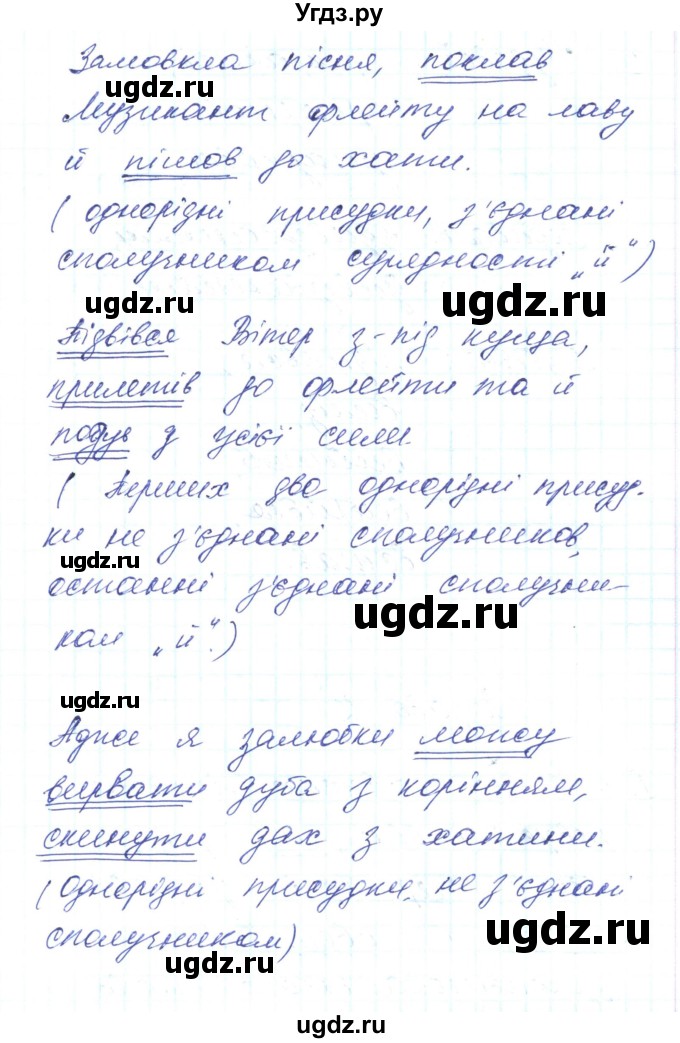 Угдз.ру
Замовкла пісня, поклав
Музикант флейту на лаву
й пішов до хати.
( однорідні присудки, з'єднані
сполучником сурядності „й“)
ugdz.ru
ugdz.ru
Підвівся Вітер з-під куща,
прилетів до флейти та й
подув з усієї сили.
ugdz.ru
( Перших два однорідні присуд-
ки не з'єднані сполучников,
ugdz.ru
останні з'єднані сполучни-
ugdz.ru
ком „й“.)
ugdz.ru
Адже я залюбки можу
вирвати дуба з корінням,
скинути дах з хатини.
(Однорідні присудки не з'єднані
ugdz.ru
сполучником)
ugdz.ru
ugdz.ru